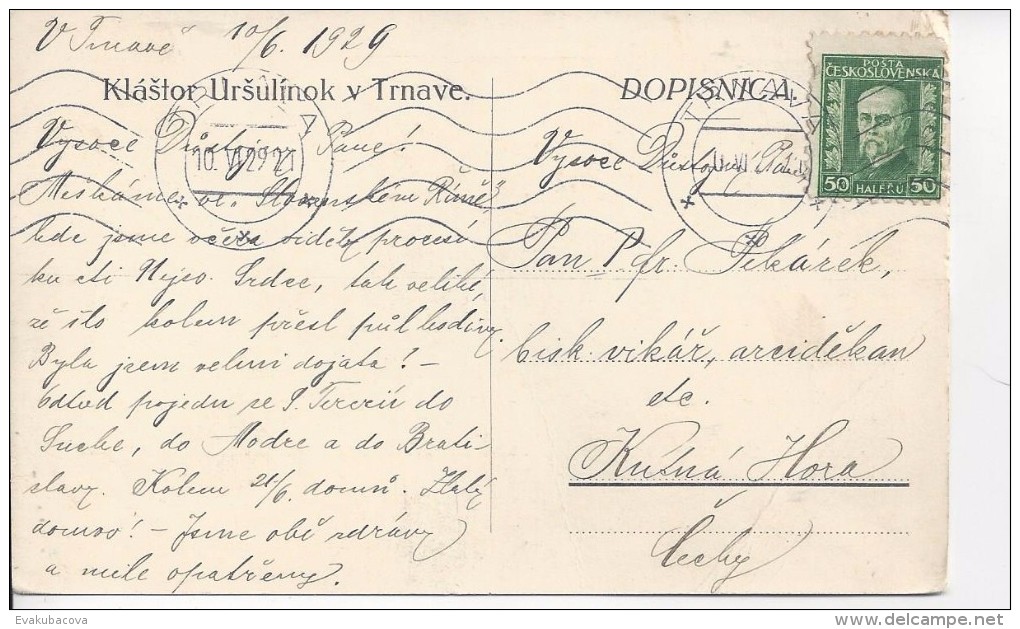 V Trnavě 10/6. 1929
Kláštor Uršulínok v Trnave.
Vysoce Důstojný Pane!
Meškáme ve Slovenském Římě,
kde jsme včera viděly procesí
ku cti Nejsv. Srdce, tak veliké,
že šlo kolem přes půl hodiny.
Byla jsem velmi dojata! –
Odtud pojedu se S. Terezií do
Suché, do Modre a do Brati-
slavy. Kolem 21/6. domů. Zlatý
domov! – Jsme obě zdrávy
a mile opatřeny.
DOPISNICA.
POŠTA
ČESKOSLOVENSKA
50 HALÉŘŮ 50
TRNAVA
10.VI.29 21
Vysoce Důstojný Pán
Pan Fr. Pekárek,
bisk. vikář, arciděkan
etc.
Kutná Hora
Čechy
Evakubacova
delcampe.net